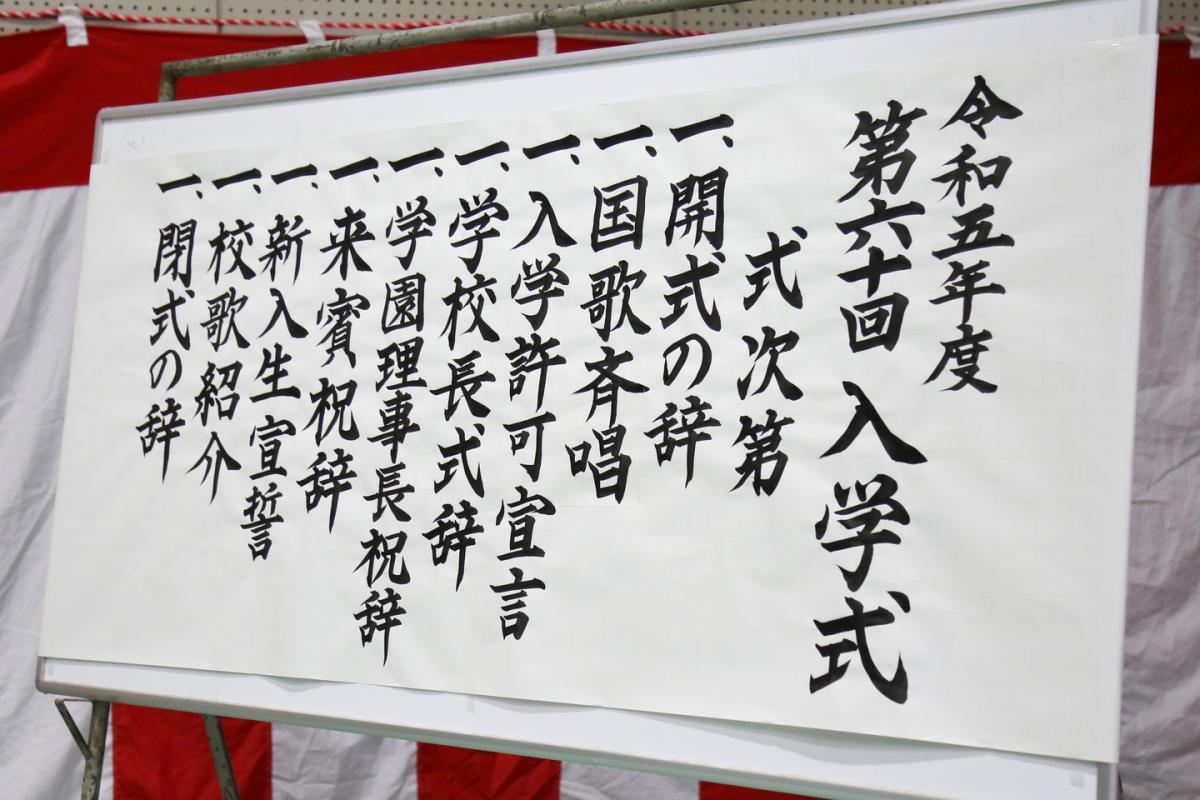 令和五年度
第六十回 入学式
式次第
一、開式の辞
一、国歌斉唱
一、入学許可宣言
一、学校長式辞
一、学園理事長祝辞
一、来賓祝辞
一、新入生宣誓
一、校歌紹介
一、閉式の辞